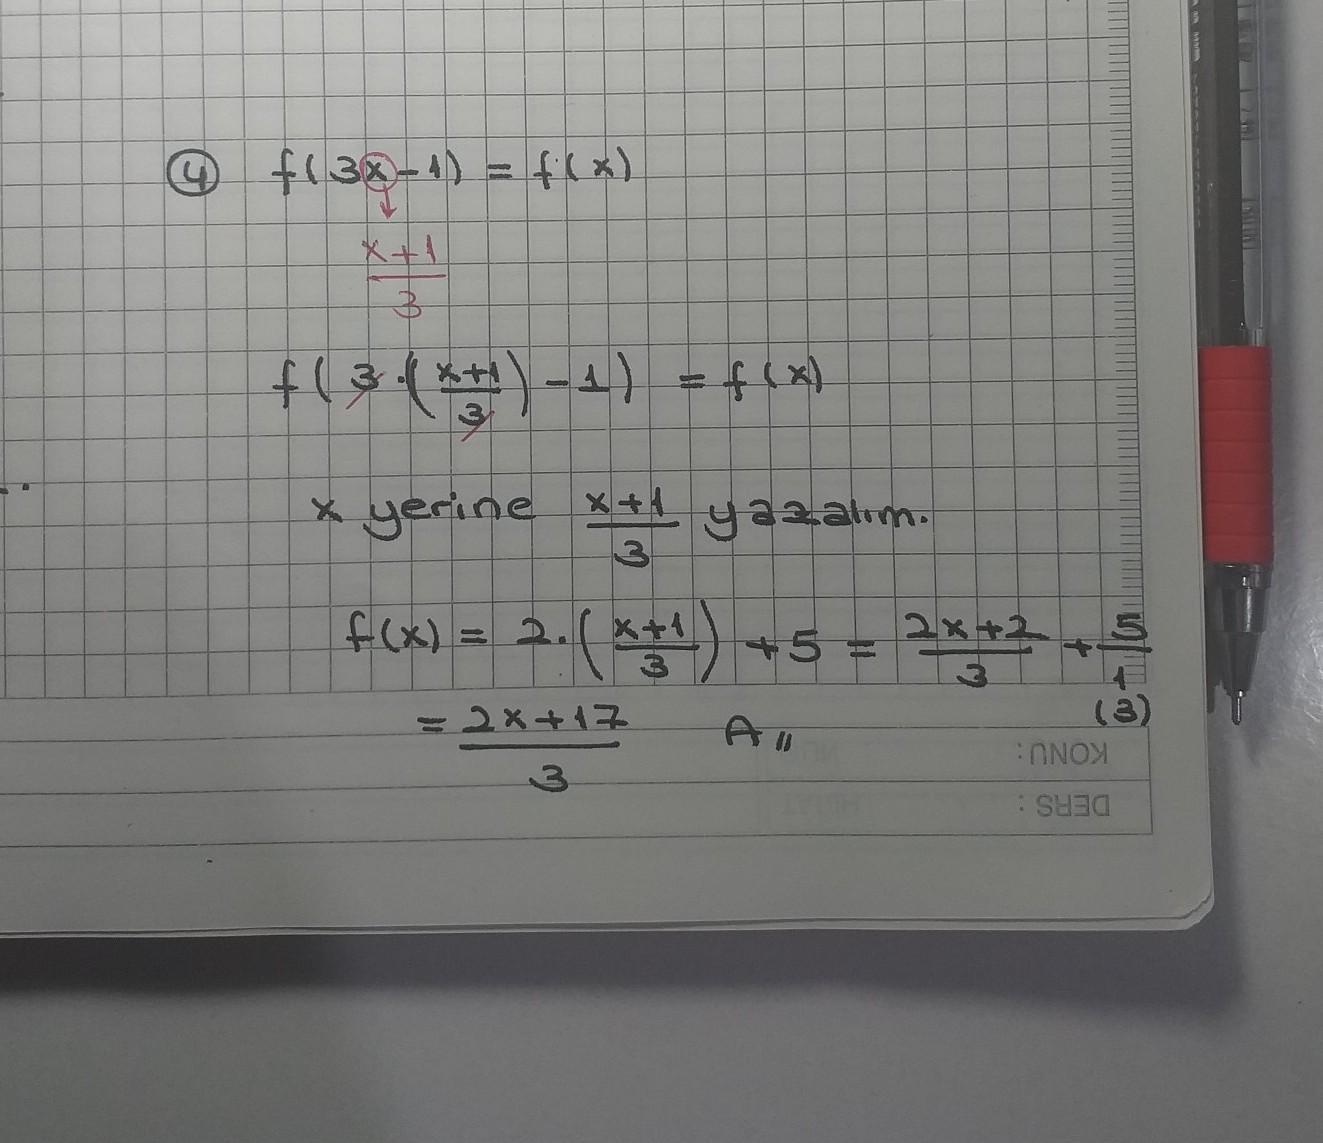 ④ f(3x-1) = f(x)
x+1
3
f(3·(x+1/3)-1) = f(x)
x yerine x+1/3 yazalım.
f(x) = 2·(x+1/3) + 5 = 2x+2/3 + 5/1
(3)
= 2x+17/3 A //
KONU:
DERS: